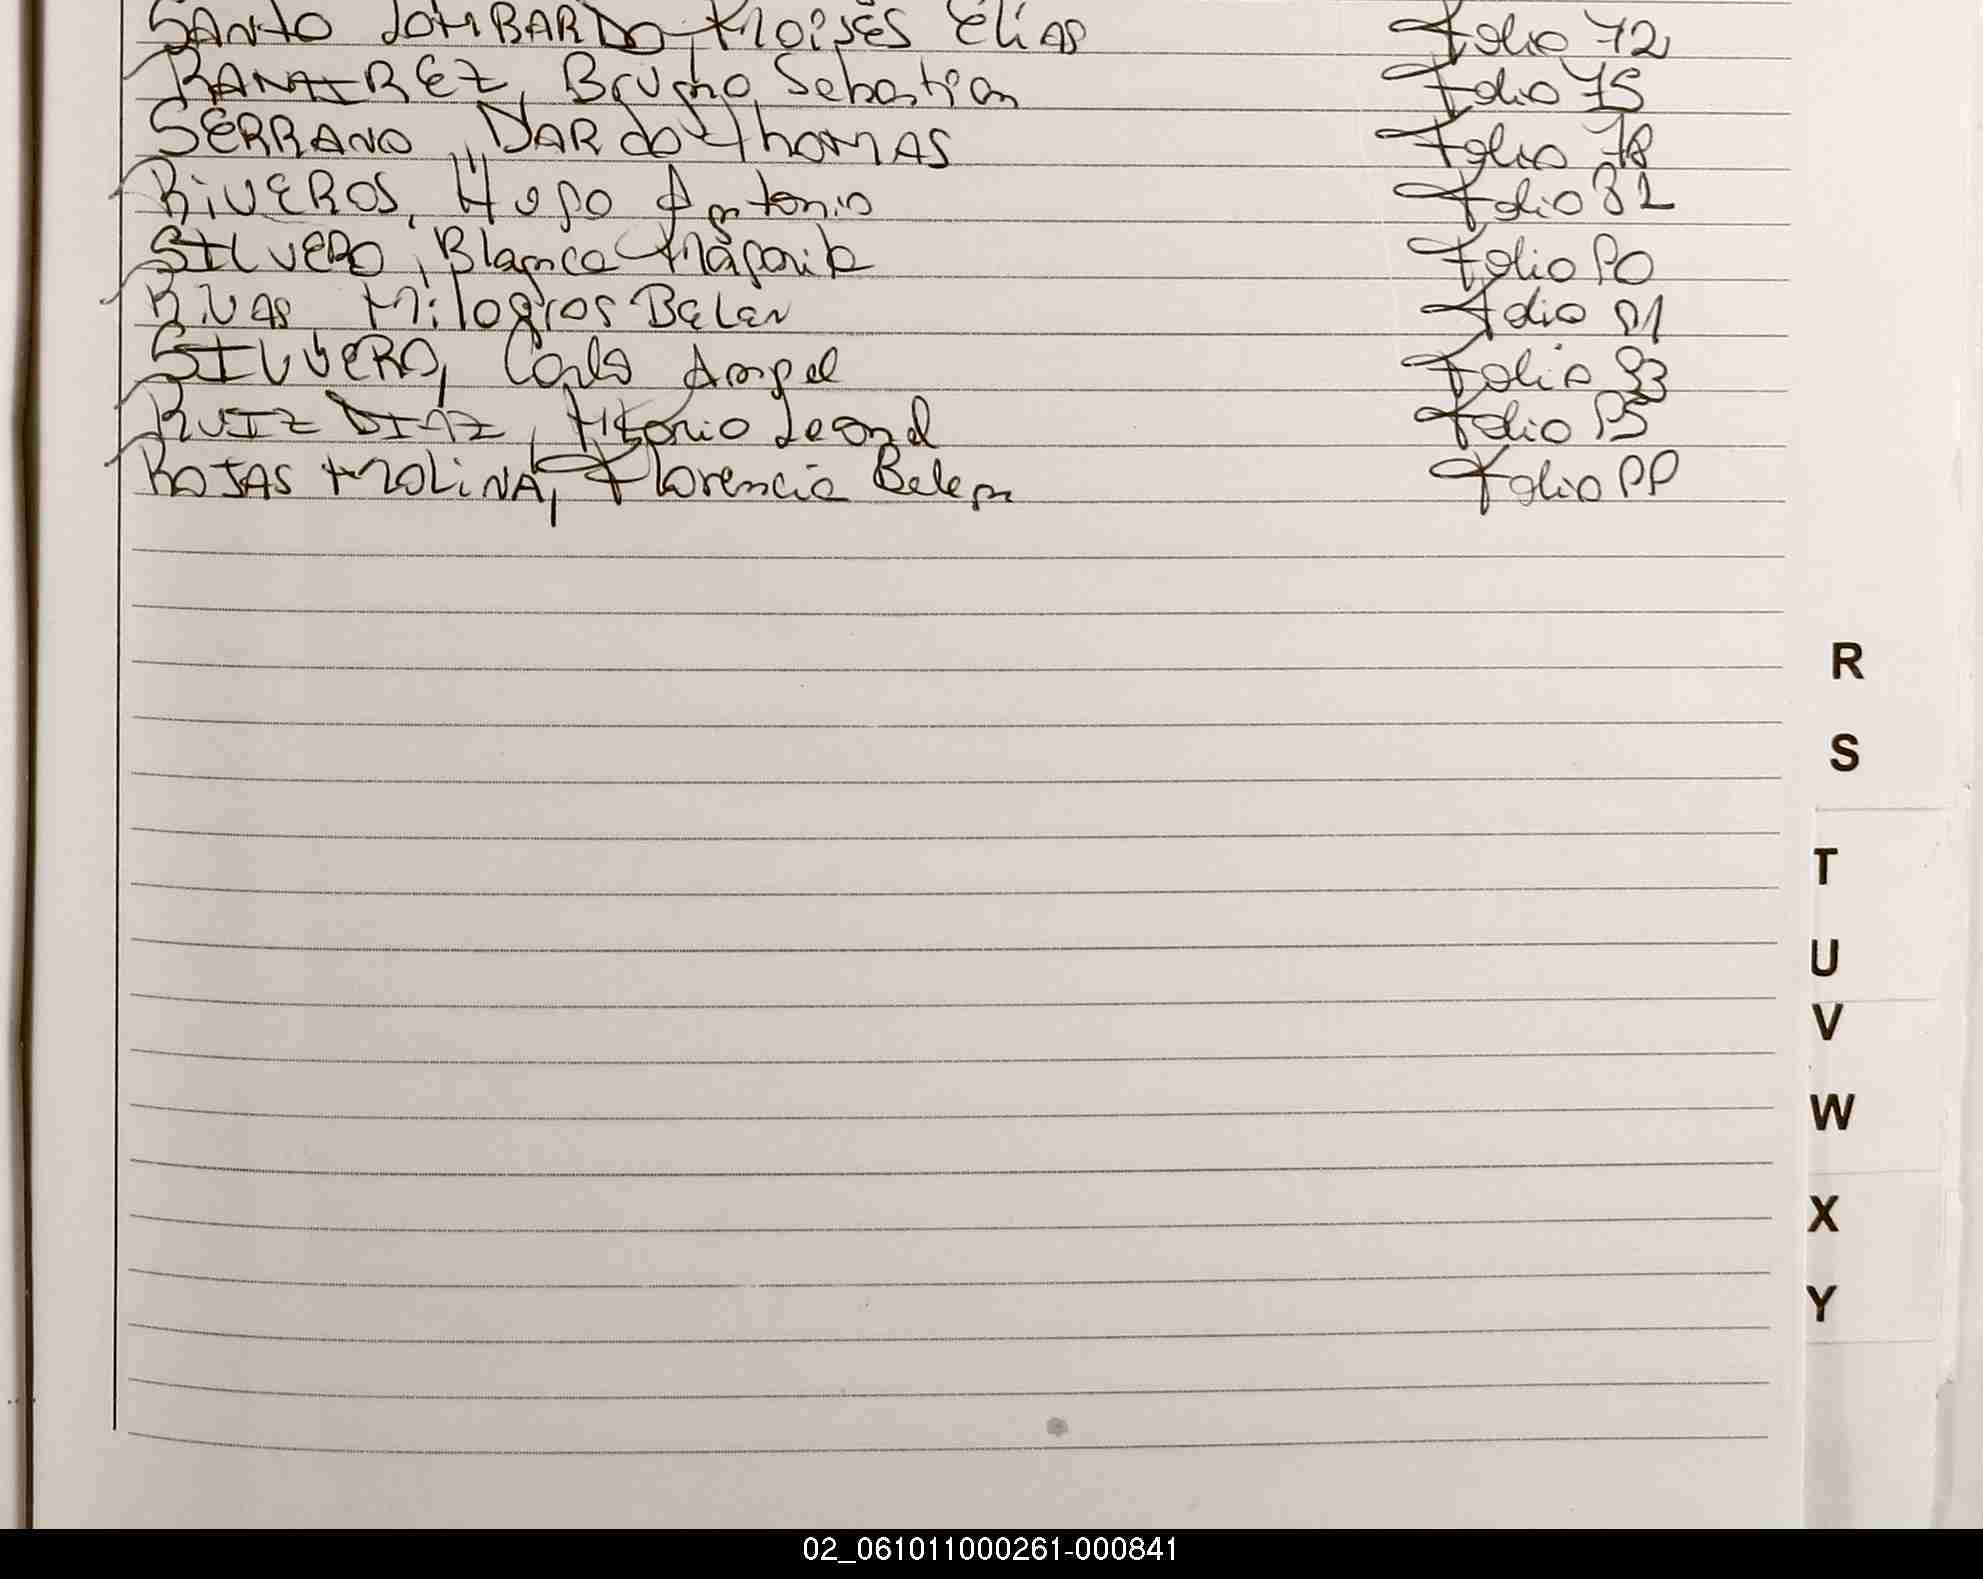 SANTO LOMBARDO, Moisés Elías Folio 72
RAMIREZ, Bruno Sebastian Folio 75
SERRANO, DARdo Thomas Folio 78
RiVEROS, Hugo Antonio Folio 82
SILVERO, Blanca Magarita Folio 90
RIVAS Milagros BELEN Folio 91
SILVERO, Carlo Angel Folio 93
RUIZ DIAZ, Leonel Folio 95
ROJAS MOLINA, Florencia Belen Folio 99
R
S
T
U
V
W
X
Y
02_061011000261-000841